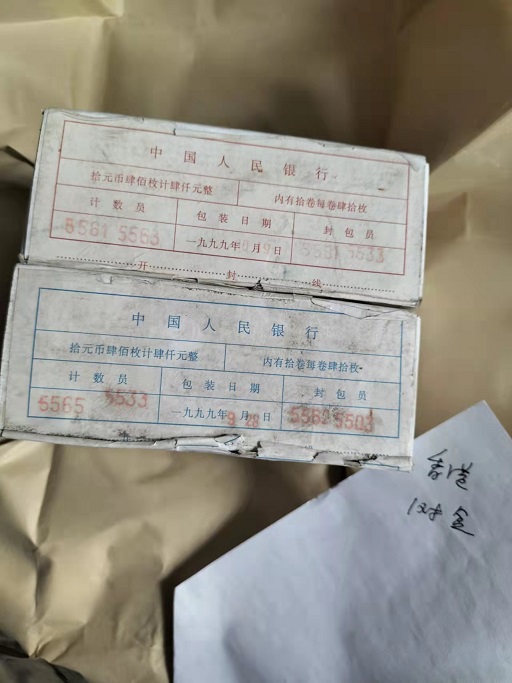 中国人民银行
拾元币肆佰枚计肆仟元整 内有拾卷每卷肆拾枚
计数员 包装日期 封包员
5561 5563 一九九九年 月 日 5561 5533
开 封 线
中国人民银行
拾元币肆佰枚计肆仟元整 内有拾卷每卷肆拾枚
计数员 包装日期 封包员
5565 5533 一九九九年9月28日 5562 5503
香港